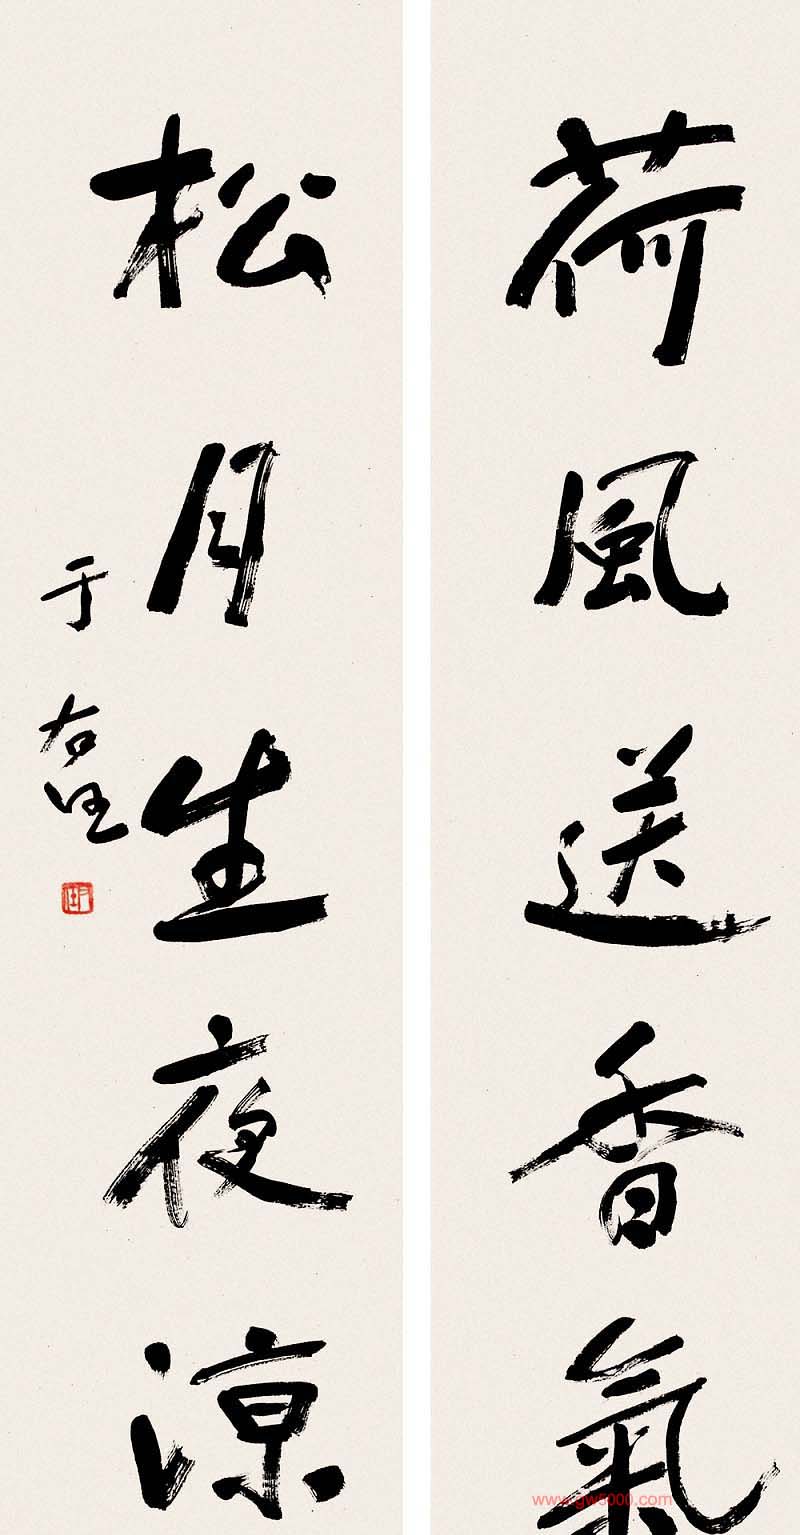 荷風送香氣
松月生夜涼
于右任
www.gw5000.com